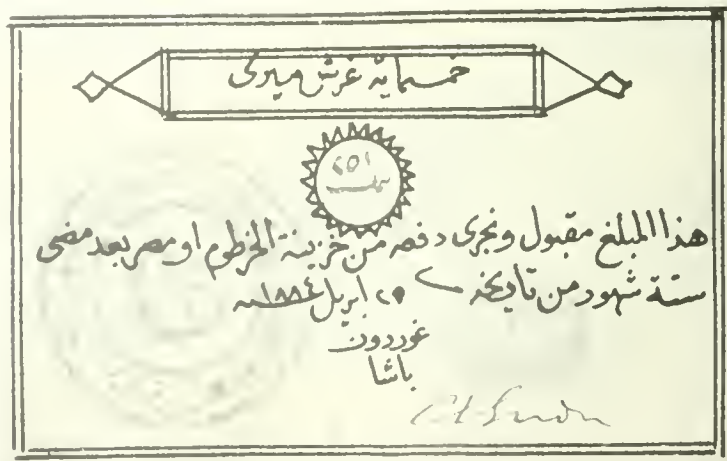 خمسماية غرش ميرى
هذا المبلغ مقبول ونجرى دفعه من خزينة الخرطوم او مصر بعد مضى
ستة شهور من تاريخه ٢٥ ابريل ١٨٨٤ سنه
غوردون
باشا